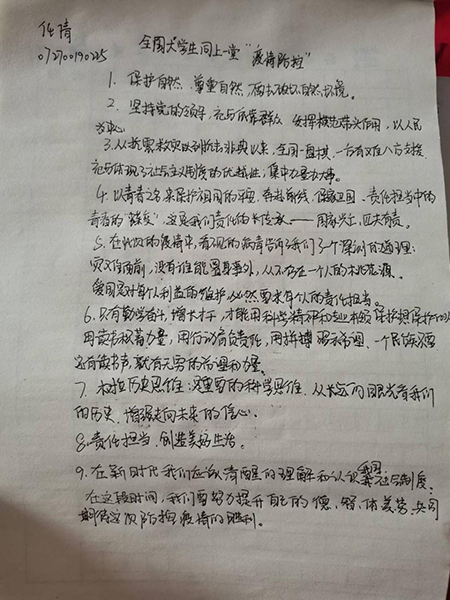 任倩
072700190225
全国大学生同上一堂"疫情防控"
1. 保护自然、尊重自然,而去破坏自然环境。
2. 坚持党的领导,充分依靠群众,发挥模范带头作用,以人民
为中心。
3. 从抗震救灾以到抗击非典以来,全国一盘棋,一方有难八方支援,
充分体现了社会主义制度的优越性,集中力量办大事。
4. 以青春之名来保护祖国的平安,奔赴前线,保家卫国,责任担当中的
青春的"韧度",这是我们责任的长传承——国家兴亡,匹夫有责。
5. 在凶凶的疫情中,看见的病毒告诉了我们一个深刻的道理:
灾难面前,没有谁能置身事外,从不存在一个人的世外桃源。
爱国是对每个人利益的维护,必然要求每个人的责任担当。
6. 只有勤学奋斗,增长才干,才能用科学精神和专业本领保护
用读书积蓄力量,用行动肩负责任,用拼搏,一个民族
还有读书声,就有无穷的治理和力量。
7. 树立历史思维:这重要的科学思维,从长远的眼光看我们
的历史,增强走向未来的信心。
8. 责任担当,创造美好生活。
9. 在新时代我们应该清醒的理解和认识我国与制度、
在这段时间,我们要努力提升自己的德、智、体、美、劳,共同
期待这次防控疫情的胜利。